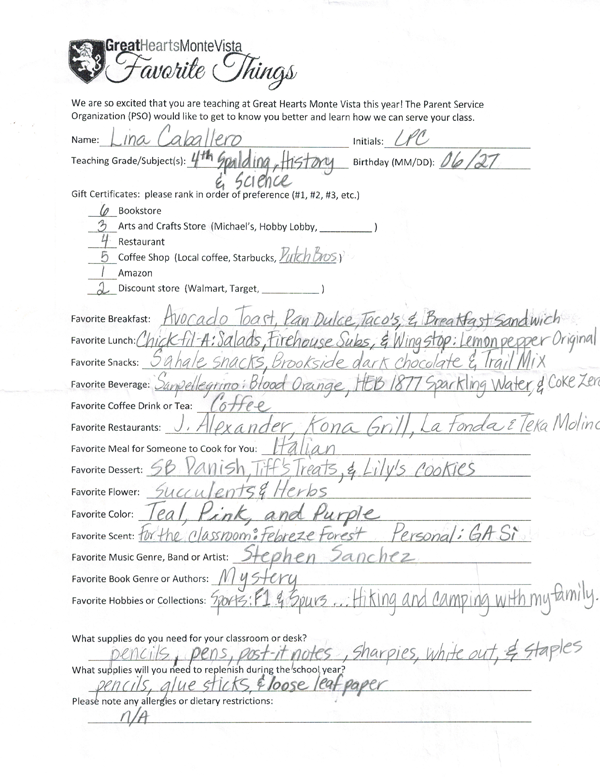 GreatHeartsMonteVista
Favorite Things
We are so excited that you are teaching at Great Hearts Monte Vista this year! The Parent Service
Organization (PSO) would like to get to know you better and learn how we can serve your class.
Name: Lina Caballero Initials: LPC
Teaching Grade/Subject(s): 4th Spalding, History Birthday (MM/DD): 06/27
& Science
Gift Certificates: please rank in order of preference (#1, #2, #3, etc.)
6 Bookstore
3 Arts and Crafts Store (Michael's, Hobby Lobby, __________ )
4 Restaurant
5 Coffee Shop (Local coffee, Starbucks, Dutch Bros )
1 Amazon
2 Discount store (Walmart, Target, ____________ )
Favorite Breakfast: Avocado Toast, Pan Dulce, Taco's, & Breakfast Sandwich
Favorite Lunch: Chick-fil-A: Salads, Firehouse Subs, & Wingstop: Lemon pepper Original
Favorite Snacks: Sahale snacks, Brookside dark chocolate & Trail Mix
Favorite Beverage: Sanpellegrino: Blood Orange, HEB 1877 Sparkling Water, & Coke Zero
Favorite Coffee Drink or Tea: Coffee
Favorite Restaurants: J. Alexander, Kona Grill, La fonda & Teka Molino
Favorite Meal for Someone to Cook for You: Italian
Favorite Dessert: SB Danish, Tiff's Treats, & Lily's cookies
Favorite Flower: Succulents & Herbs
Favorite Color: Teal, Pink, and Purple
Favorite Scent: For the classroom: Febreze Forest Personal: GA Si
Favorite Music Genre, Band or Artist: Stephen Sanchez
Favorite Book Genre or Authors: Mystery
Favorite Hobbies or Collections: Sports: F1 & Spurs ... Hiking and camping with my family.
What supplies do you need for your classroom or desk?
pencils, pens, post-it notes, sharpies, white out, & staples
What supplies will you need to replenish during the school year?
pencils, glue sticks, & loose leaf paper
Please note any allergies or dietary restrictions:
n/A